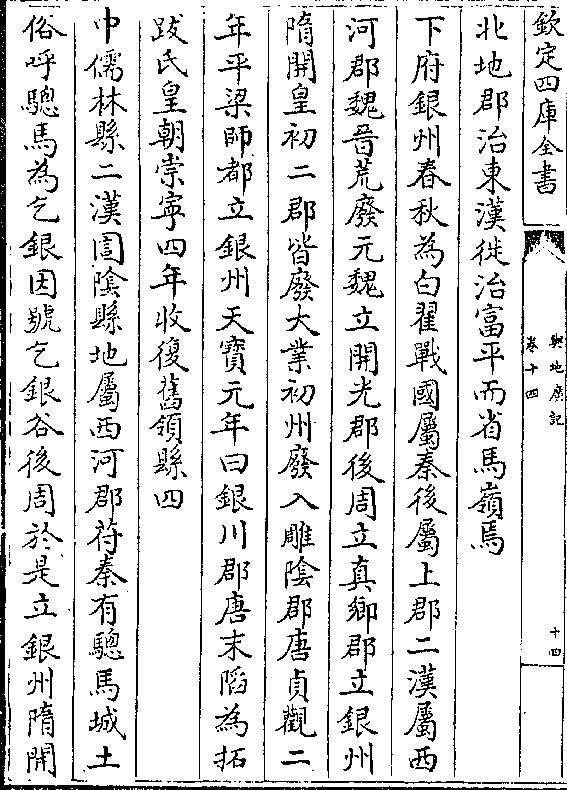 欽定四庫全書
輿地廣記
卷十四
十四
北地郡治東漢徙治富平而省馬嶺焉
下府銀州春秋為白翟戰國屬秦後屬上郡二漢屬西
河郡魏晋荒廢元魏立開光郡後周立真鄉郡立銀州
隋開皇初二郡皆廢大業初州廢入雕陰郡唐貞觀二
年平梁師都立銀州天寶元年曰銀川郡唐末䧟為拓
跋氏皇朝崇寧四年收復舊領縣四
中儒林縣二漢圁隂縣地屬西河郡苻秦有驄馬城土
俗呼驄馬為乞銀因號乞銀谷後周於是立銀州隋開